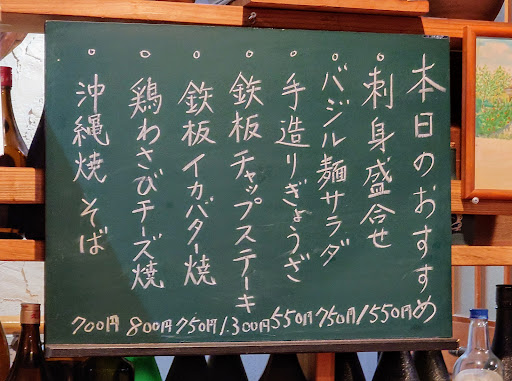 本日のおすすめ
。刺身盛合せ 1550円
。バジル麺サラダ 750円
。手造りぎょうざ 550円
。鉄板チャップステーキ 1.300円
。鉄板イカバター焼 750円
。鶏わさびチーズ焼 800円
。沖縄焼そば 700円